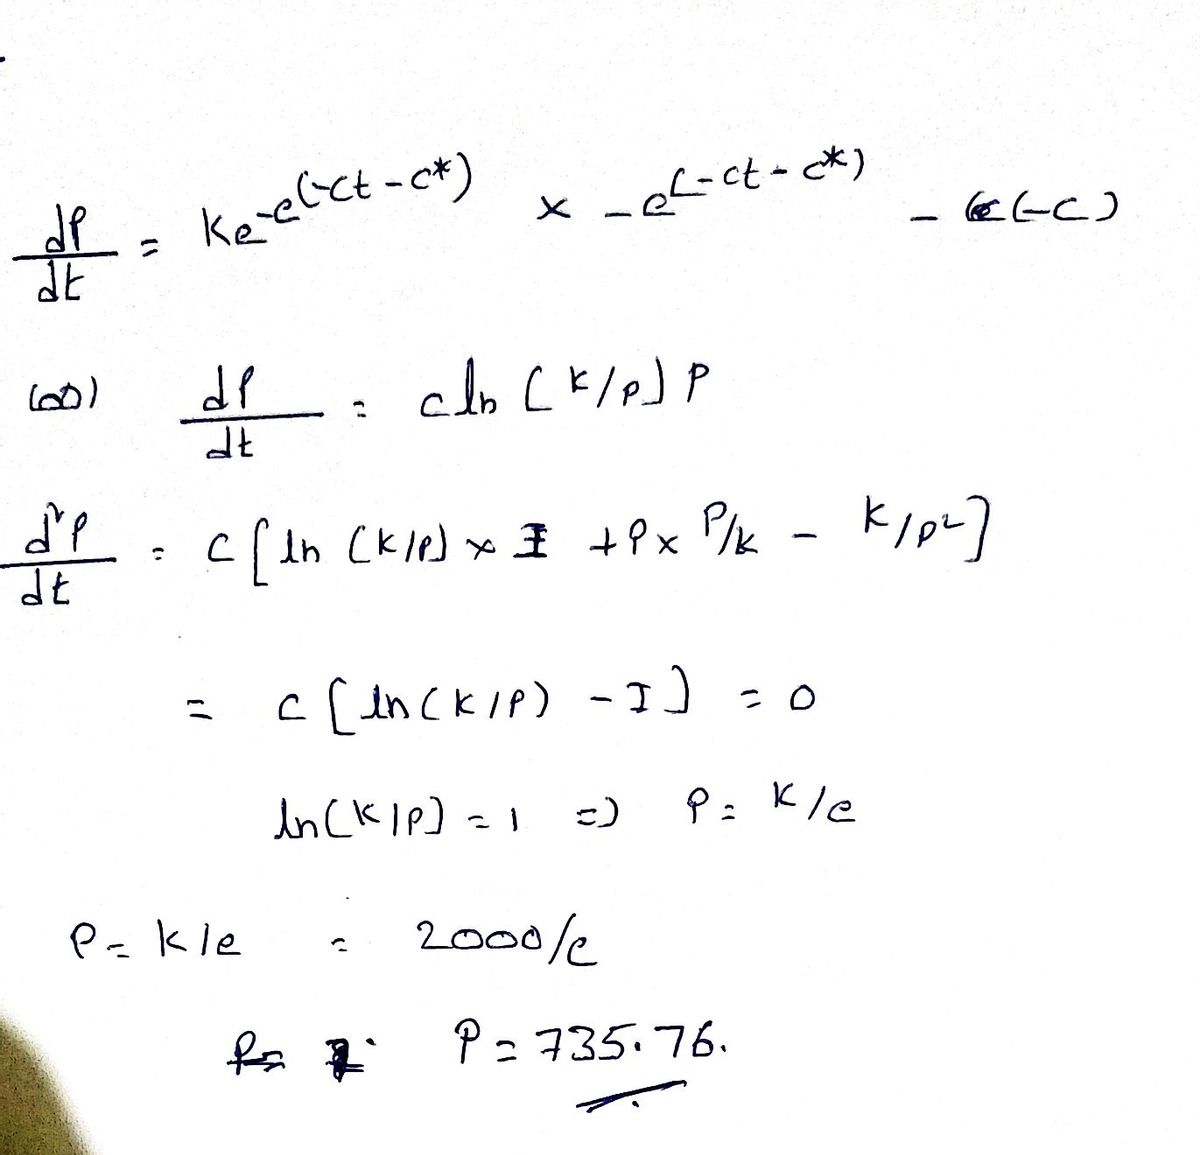 dP/dt = Ke^-e^(-ct - c*) × -e^(-ct - c*) - (-c)
(or) dP/dt = c ln (K/P) P
d²P/dt = c [ln (K/P) × 1 + P × P/k - K/P²]
= c [ln (K/P) - 1] = 0
ln (K/P) = 1 => P = K/e
P = K/e = 2000/e
P = 735.76.